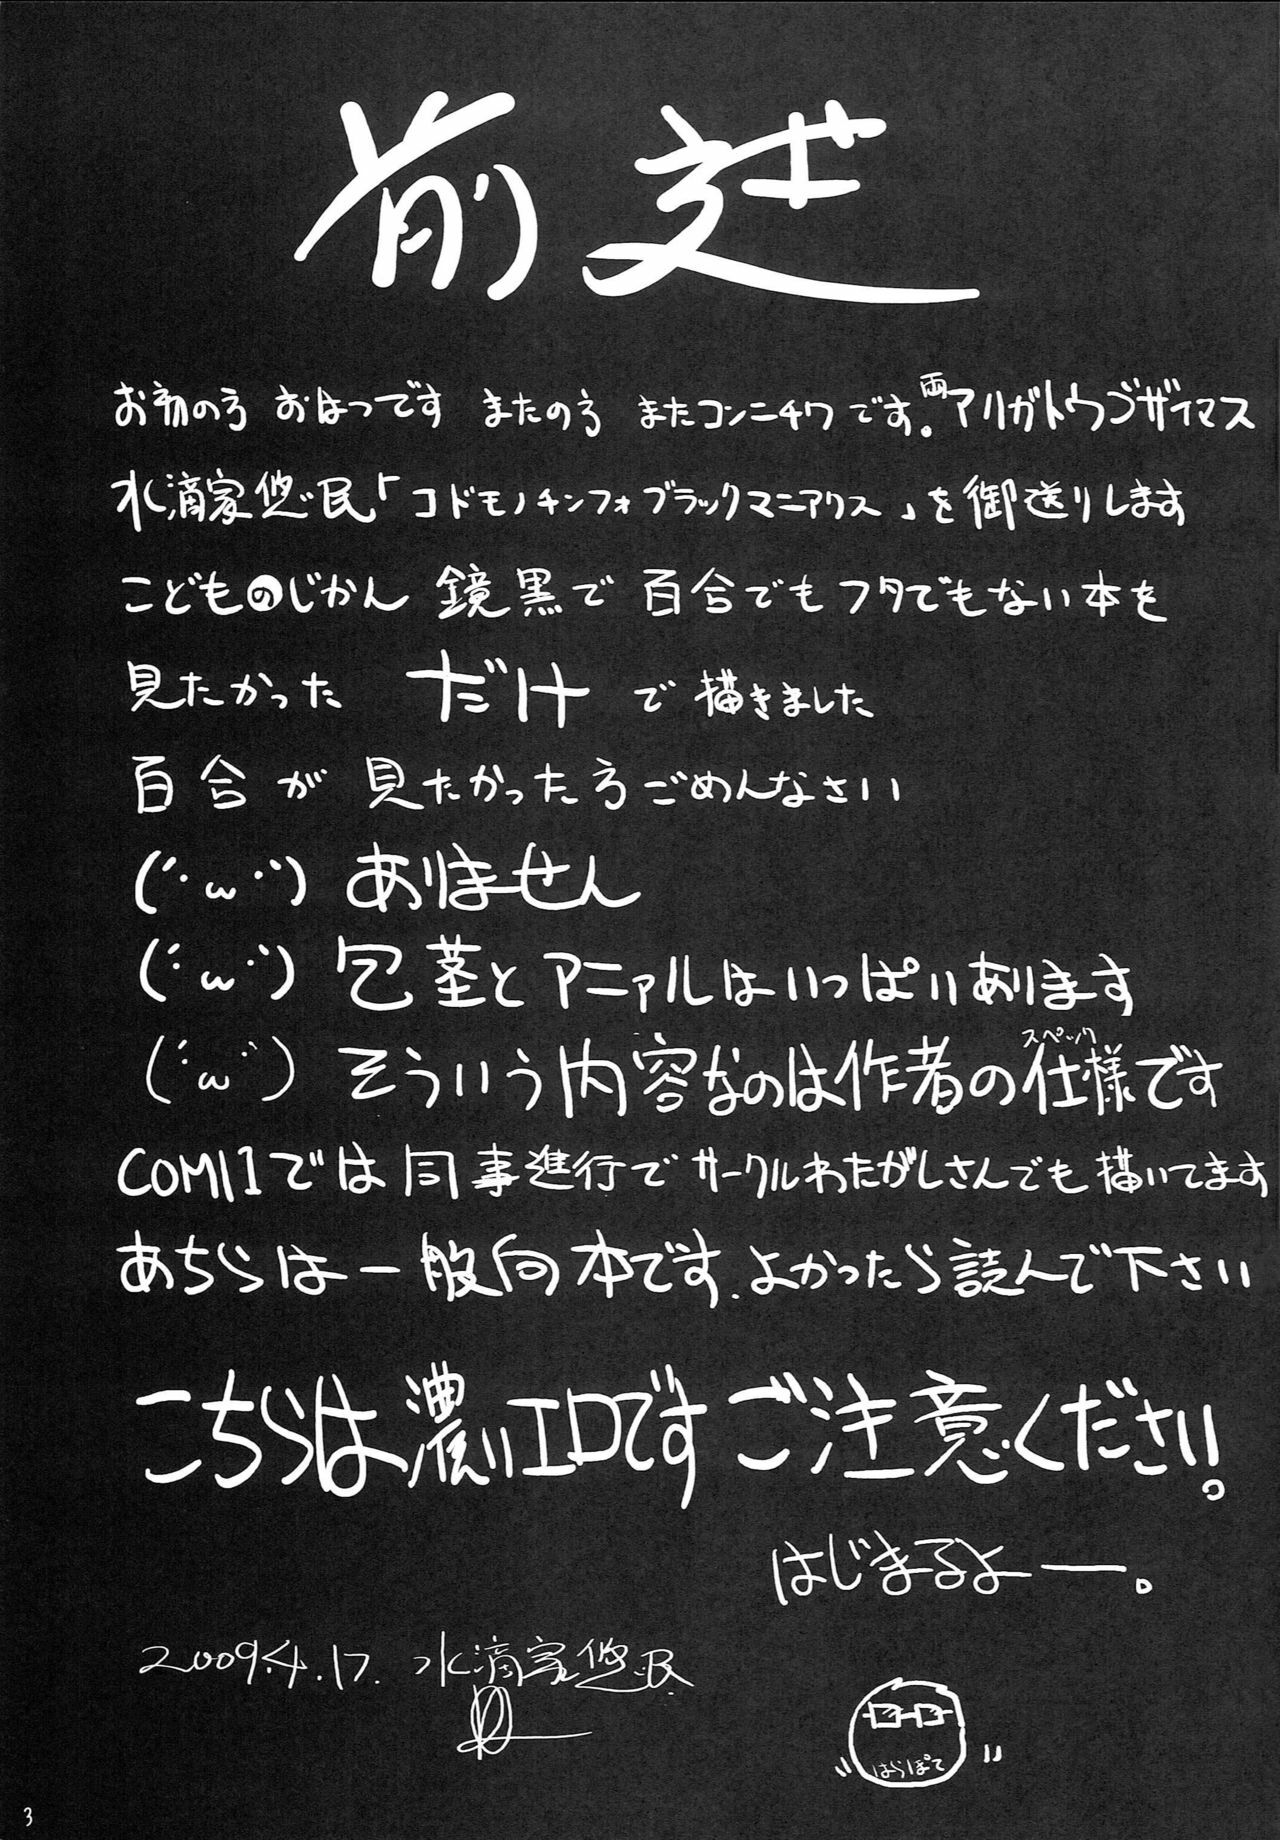 前述
お初の方 おはつです またの方 またコンニチワです。両アリガトウゴザイマス
水滴家悠民「コドモノチンフォブラックマニアクス」を御送りします
こどものじかん 鏡黒で 百合でもフタでもない本を
見たかった だけ で描きました
百合が見たかった方ごめんなさい
(´・ω・`) ありません
(´・ω・`) 包茎とアニァルはいっぱいあります
(´・ω・`) そういう内容なのは作者の仕様です
スペック
COMI1では同事進行でサークルわたがしさんでも描いてます
あちらは一般向本です.よかったら読んで下さい
こちらは濃いエロですご注意ください。
はじまるよー。
2009.4.17. 水滴家悠民
はらぽて
3